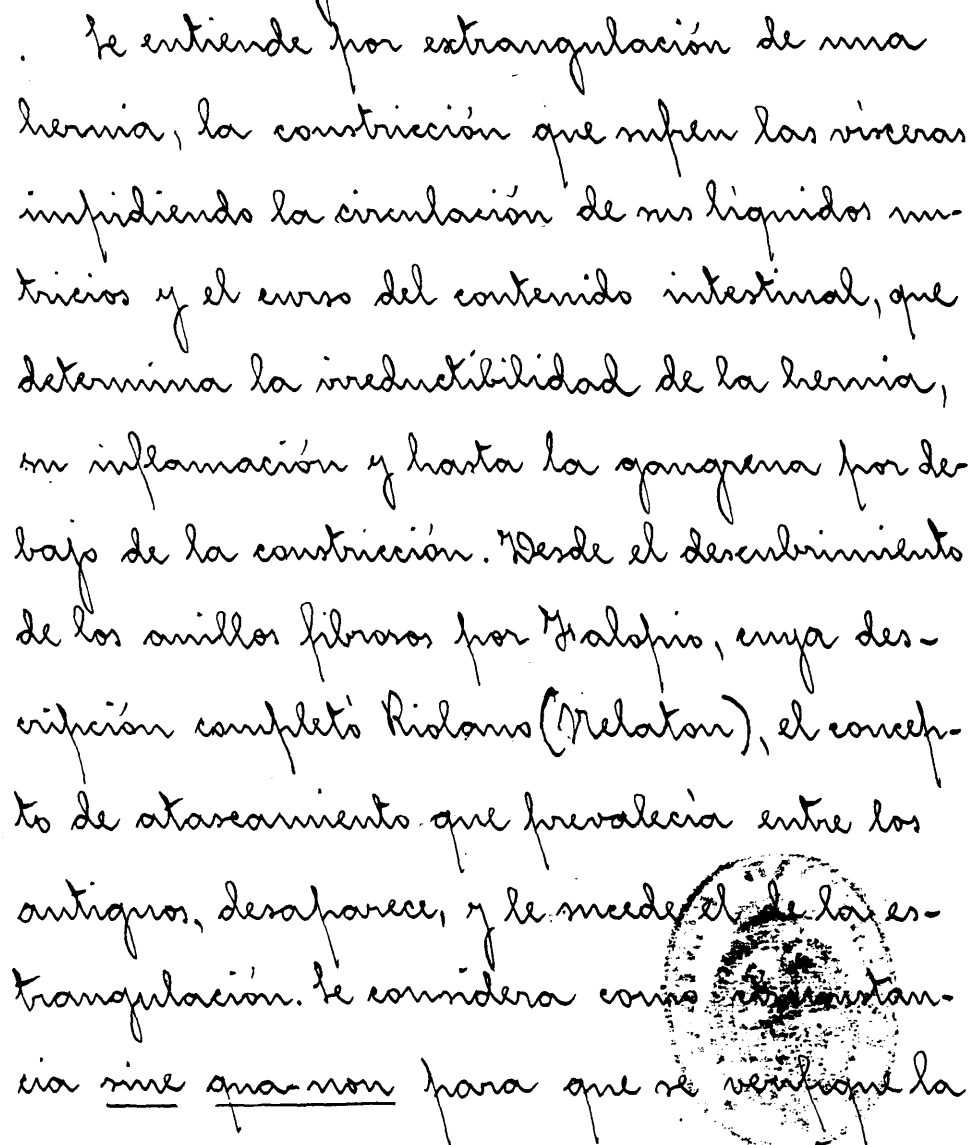 Se entiende por extrangulación de una
hernia, la constricción que sufren las vísceras
impidiendo la circulación de sus líquidos nu-
tricios y el curso del contenido intestinal, que
determina la irreductibilidad de la hernia,
su inflamación y hasta la gangrena por de-
bajo de la constricción. Desde el descubrimiento
de los anillos fibrosos por Falopio, cuya des-
cripción completó Riolano (Nelaton), el concep-
to de atascamiento que prevalecía entre los
antiguos, desaparece, y le sucede el de la es-
trangulación. Se considera como circunstan-
cia sine qua-non para que se verifique la